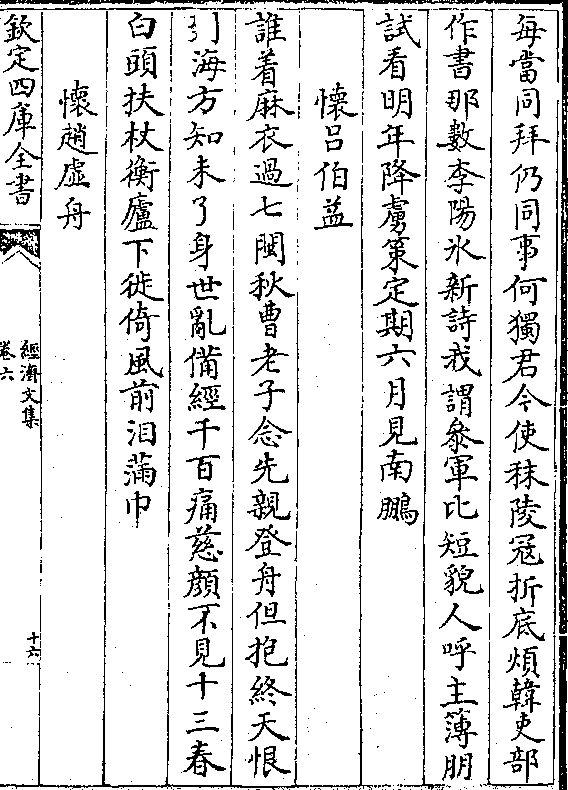 每當同拜仍同事何獨君今使秣陵冠折底煩韓吏部
作書那數李陽氷新詩我謂參軍比短貌人呼主簿朋
試看明年降虜策定期六月見南鵬
懷吕伯益
誰着麻衣過七閩秋曹老子念先親登舟但抱終天恨
引海方知未了身世亂備經千百痛慈顔不見十三春
白頭扶杖衡廬下徙倚風前泪滿巾
懷趙虛舟
欽定四庫全書
經濟文集
卷六
十六